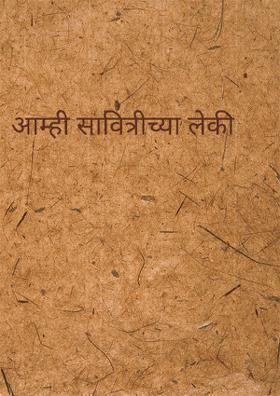 आम्ही सावित्रीच्या लेकी